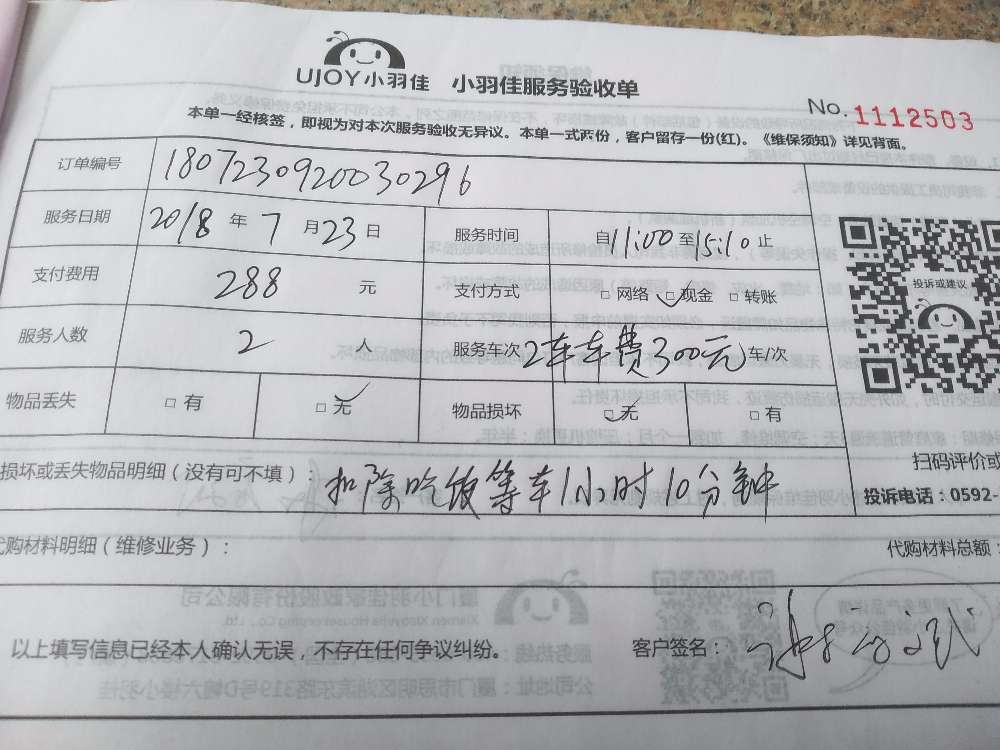 UJOY小羽佳 小羽佳服务验收单
No. 1112503
本单一经核签，即视为对本次服务验收无异议。本单一式两份，客户留存一份(红)。《维保须知》详见背面。
订单编号 1807230920030296
服务日期 2018 年 7 月 23 日 服务时间 自 11:00 至 15:10 止
支付费用 288 元 支付方式 □ 网络 □ 现金 □ 转账
投诉或建议
服务人数 2 人 服务车次 2车车费300元 车/次
物品丢失 □ 有 □ 无 物品损坏 □ 无 □ 有
扫码评价或
损坏或丢失物品明细（没有可不填）： 扣除吃饭等车1小时10分钟
投诉电话：0592-
代购材料明细（维修业务）： 代购材料总额：
以上填写信息已经本人确认无误，不存在任何争议纠纷。 客户签名：